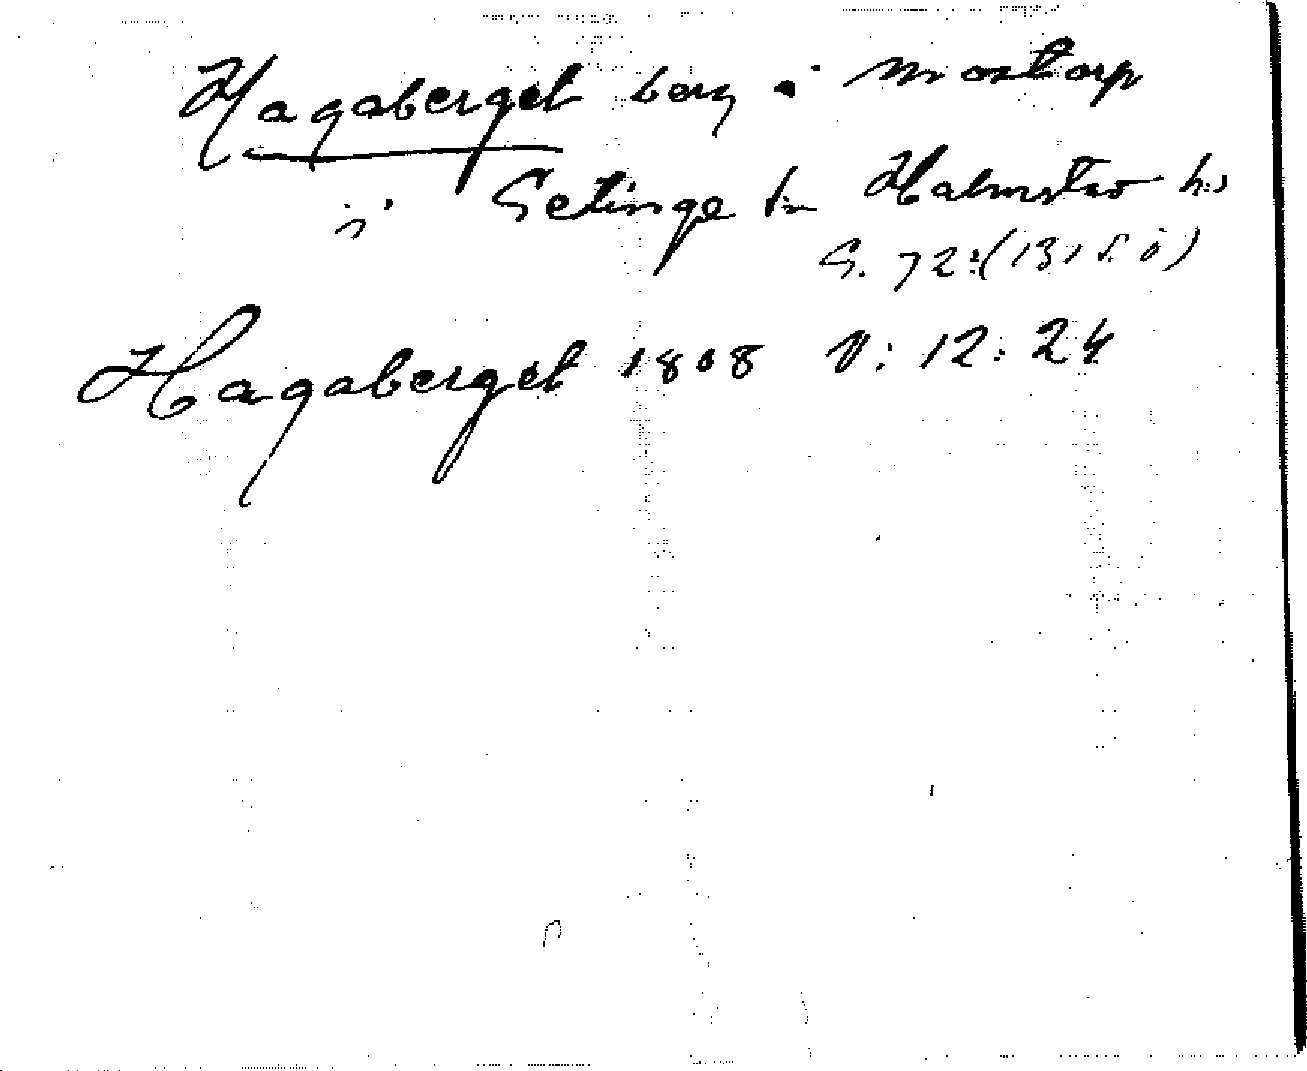 Hagaberget berg i Mostorp
i Getinge sn Halmstad hd
G. 72:
Hagaberget 1808 V: 12: 24